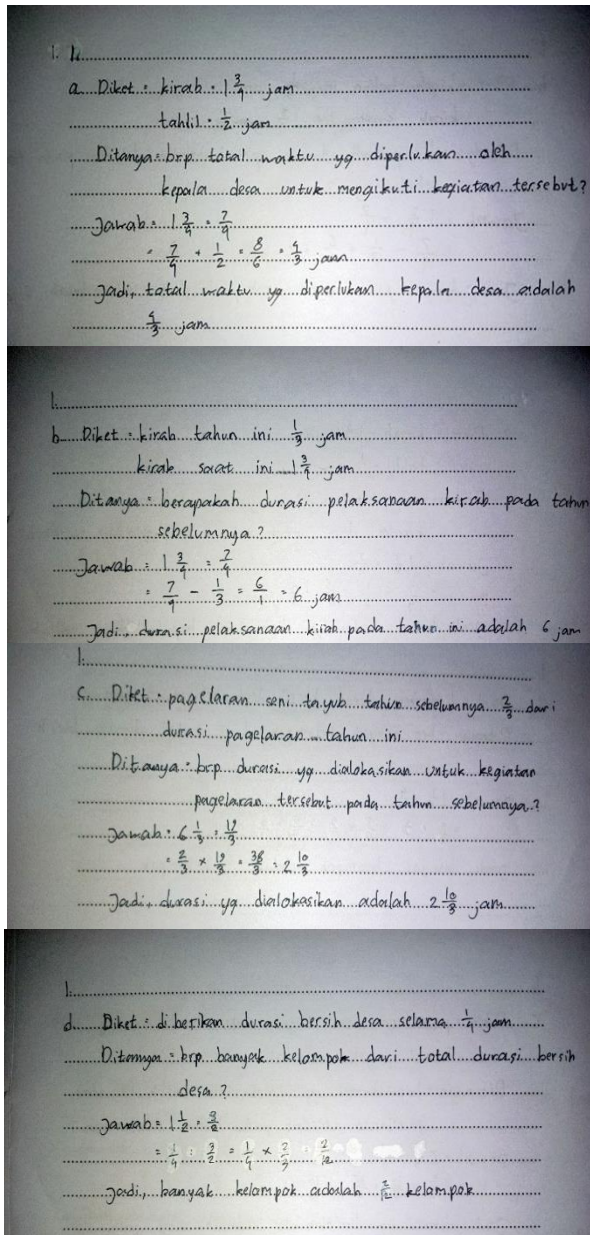 1. 1.
a. Diket : kirab : 1 3/4 jam
tahlil : 1/2 jam
Ditanya : brp total waktu yg diperlukan oleh
kepala desa untuk mengikuti kegiatan tersebut?
Jawab = 1 3/4 = 7/4
= 7/4 + 1/2 = 8/6 = 4/3 jam
Jadi, total waktu yg diperlukan kepala desa adalah
4/3 jam
1.
b. Diket : kirab tahun ini 1/3 jam
kirab saat ini 1 3/4 jam
Ditanya : berapakah durasi pelaksanaan kirab pada tahun
sebelumnya?
Jawab = 1 3/4 = 7/4
= 7/4 - 1/3 = 6/1 = 6 jam
Jadi, durasi pelaksanaan kirab pada tahun ini adalah 6 jam
1.
c. Diket : pagelaran seni tayub tahun sebelumnya 2/3 dari
durasi pagelaran tahun ini
Ditanya : brp durasi yg dialokasikan untuk kegiatan
pagelaran tersebut pada tahun sebelumnya?
Jawab : 6 1/3 = 19/3
= 2/3 × 19/3 = 38/3 = 2 10/3
Jadi, durasi yg dialokasikan adalah 2 10/3 jam
1.
d. Diket : diberikan durasi bersih desa selama 1/4 jam
Ditanya : brp banyak kelompok dari total durasi bersih
desa?
Jawab = 1 1/2 = 3/2
= 1/4 : 3/2 = 1/4 × 2/3 = 2/12
Jadi, banyak kelompok adalah 2/12 kelompok